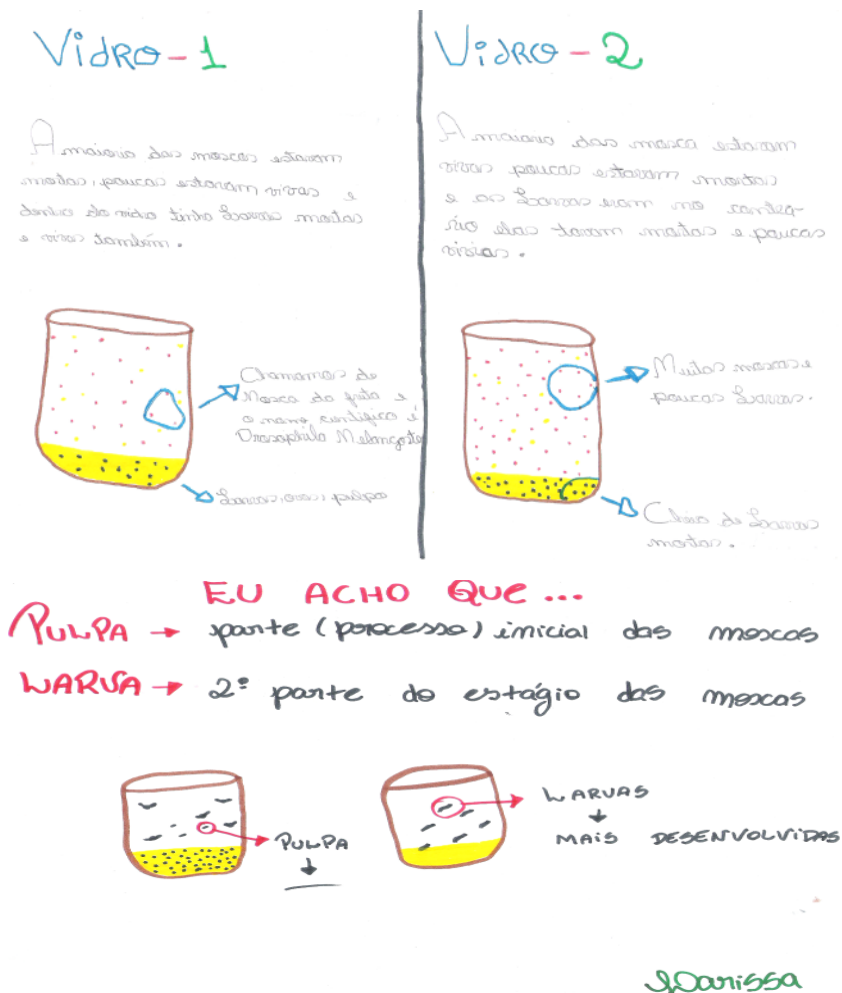 Vidro-1
A maioria das moscas estavam
mortas, poucas estavam vivas e
dentro do vidro tinha Larvas mortas
e vivas também.
Chamamos de
Mosca da fruta e
o nome científico é
Drosophila Melangaste
Larvas, ovos, pulpa
Vidro-2
A maioria das mosca estavam
vivas poucas estavam mortas
e as Larvas eram no contrá-
rio elas tavam mortas e poucas
vivias.
Muitas moscas e
poucas Larvas.
Cheio de Larvas
mortas.
EU ACHO QUE...
PULPA → parte (porocesso) inicial das moscas
LARVA → 2ª parte do estágio das moscas
PULPA
LARVAS
MAIS DESENVOLVIDAS
Larissa